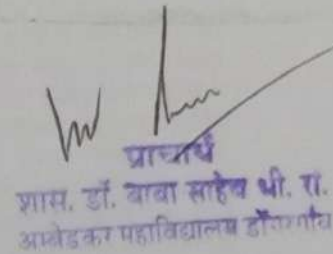 प्राचार्य
शास. डॉ. बाबा साहेब भी. रा.
आम्बेडकर महाविद्यालय डोंगरगाँव